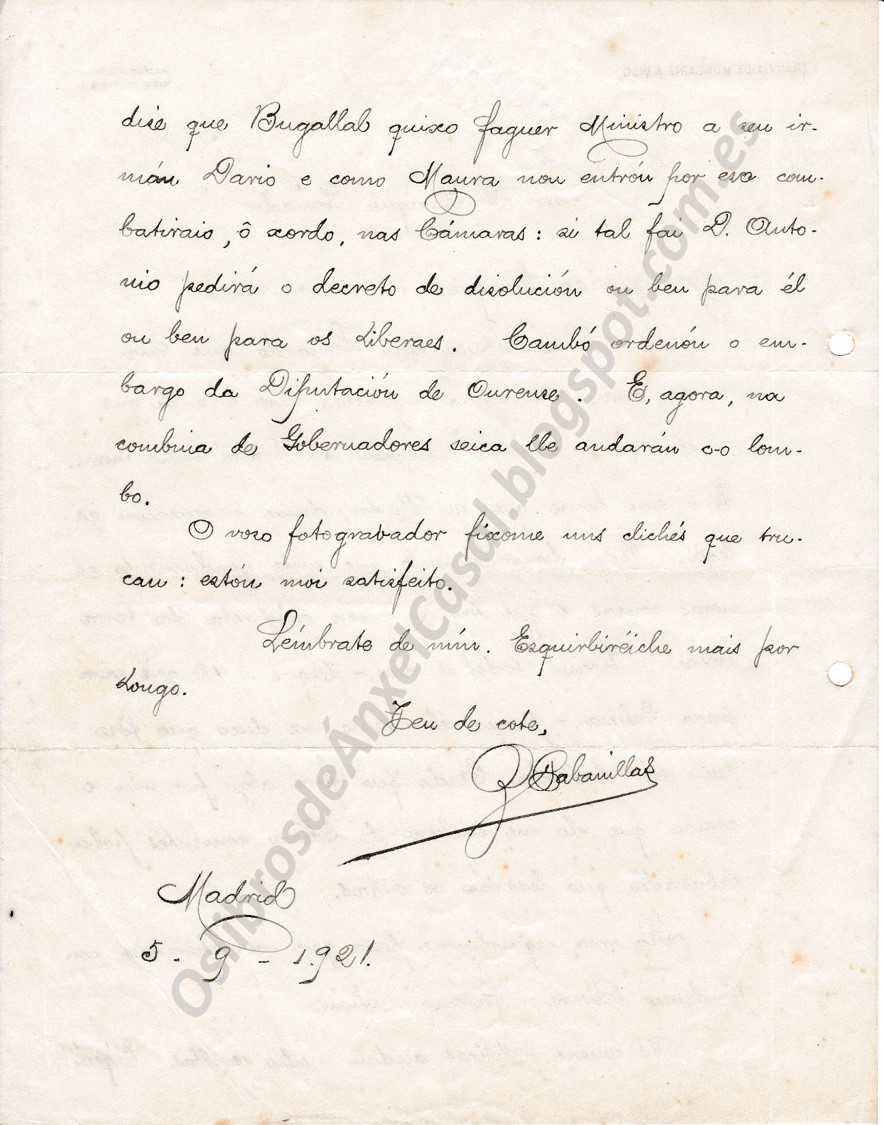 dise que Bugallal quixo faguer Ministro a seu ir-
mán Dario e como Maura nou entróu por éso com-
batiraio, ô xordo, nas Cámaras: si tal fai D. Anto-
nio pedirá o decreto de disolución ou ben para él
ou ben para os Liberaes. Cambó ordenóu o em-
bargo da Diputación de Ourense. E, agora, na
combina de Gobernadores seica lle andarán o-o lom-
bo.
O voso fotograbador fixome uns clichés que tru-
can: estóu moi satisfeito.
Lémbrate de mín. Esquirbiréiche mais por
longo.
Teu de cote,
R Cabanillas
Madrid
5 - 9 - 1.921.
OslibrosdeÁnxelCasal.blogspot.com.es